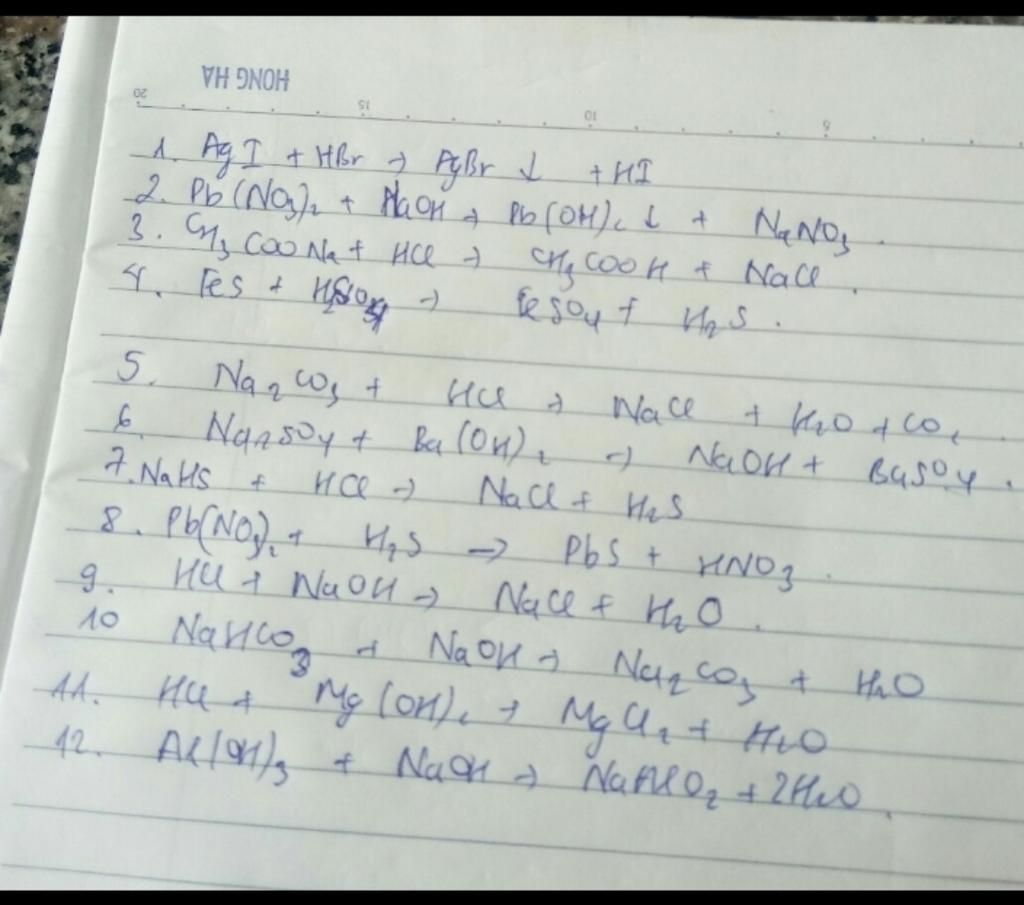 HONG HA
20 15 10 5
1. AgI + HBr → AgBr ↓ + HI
2. Pb(NO3)2 + NaOH → Pb(OH)2 ↓ + NaNO3.
3. CH3COONa + HCl → CH3COOH + NaCl.
4. FeS + H2SO4 → FeSO4 + H2S.
5. Na2CO3 + HCl → NaCl + H2O + CO2.
6. Na2SO4 + Ba(OH)2 → NaOH + BaSO4.
7. NaHS + HCl → NaCl + H2S
8. Pb(NO3)2 + H2S → PbS + HNO3.
9. HCl + NaOH → NaCl + H2O.
10 NaHCO3 + NaOH → Na2CO3 + H2O
11. HCl + Mg(OH)2 → MgCl2 + H2O
12. Al(OH)3 + NaOH → NaAlO2 + 2H2O.